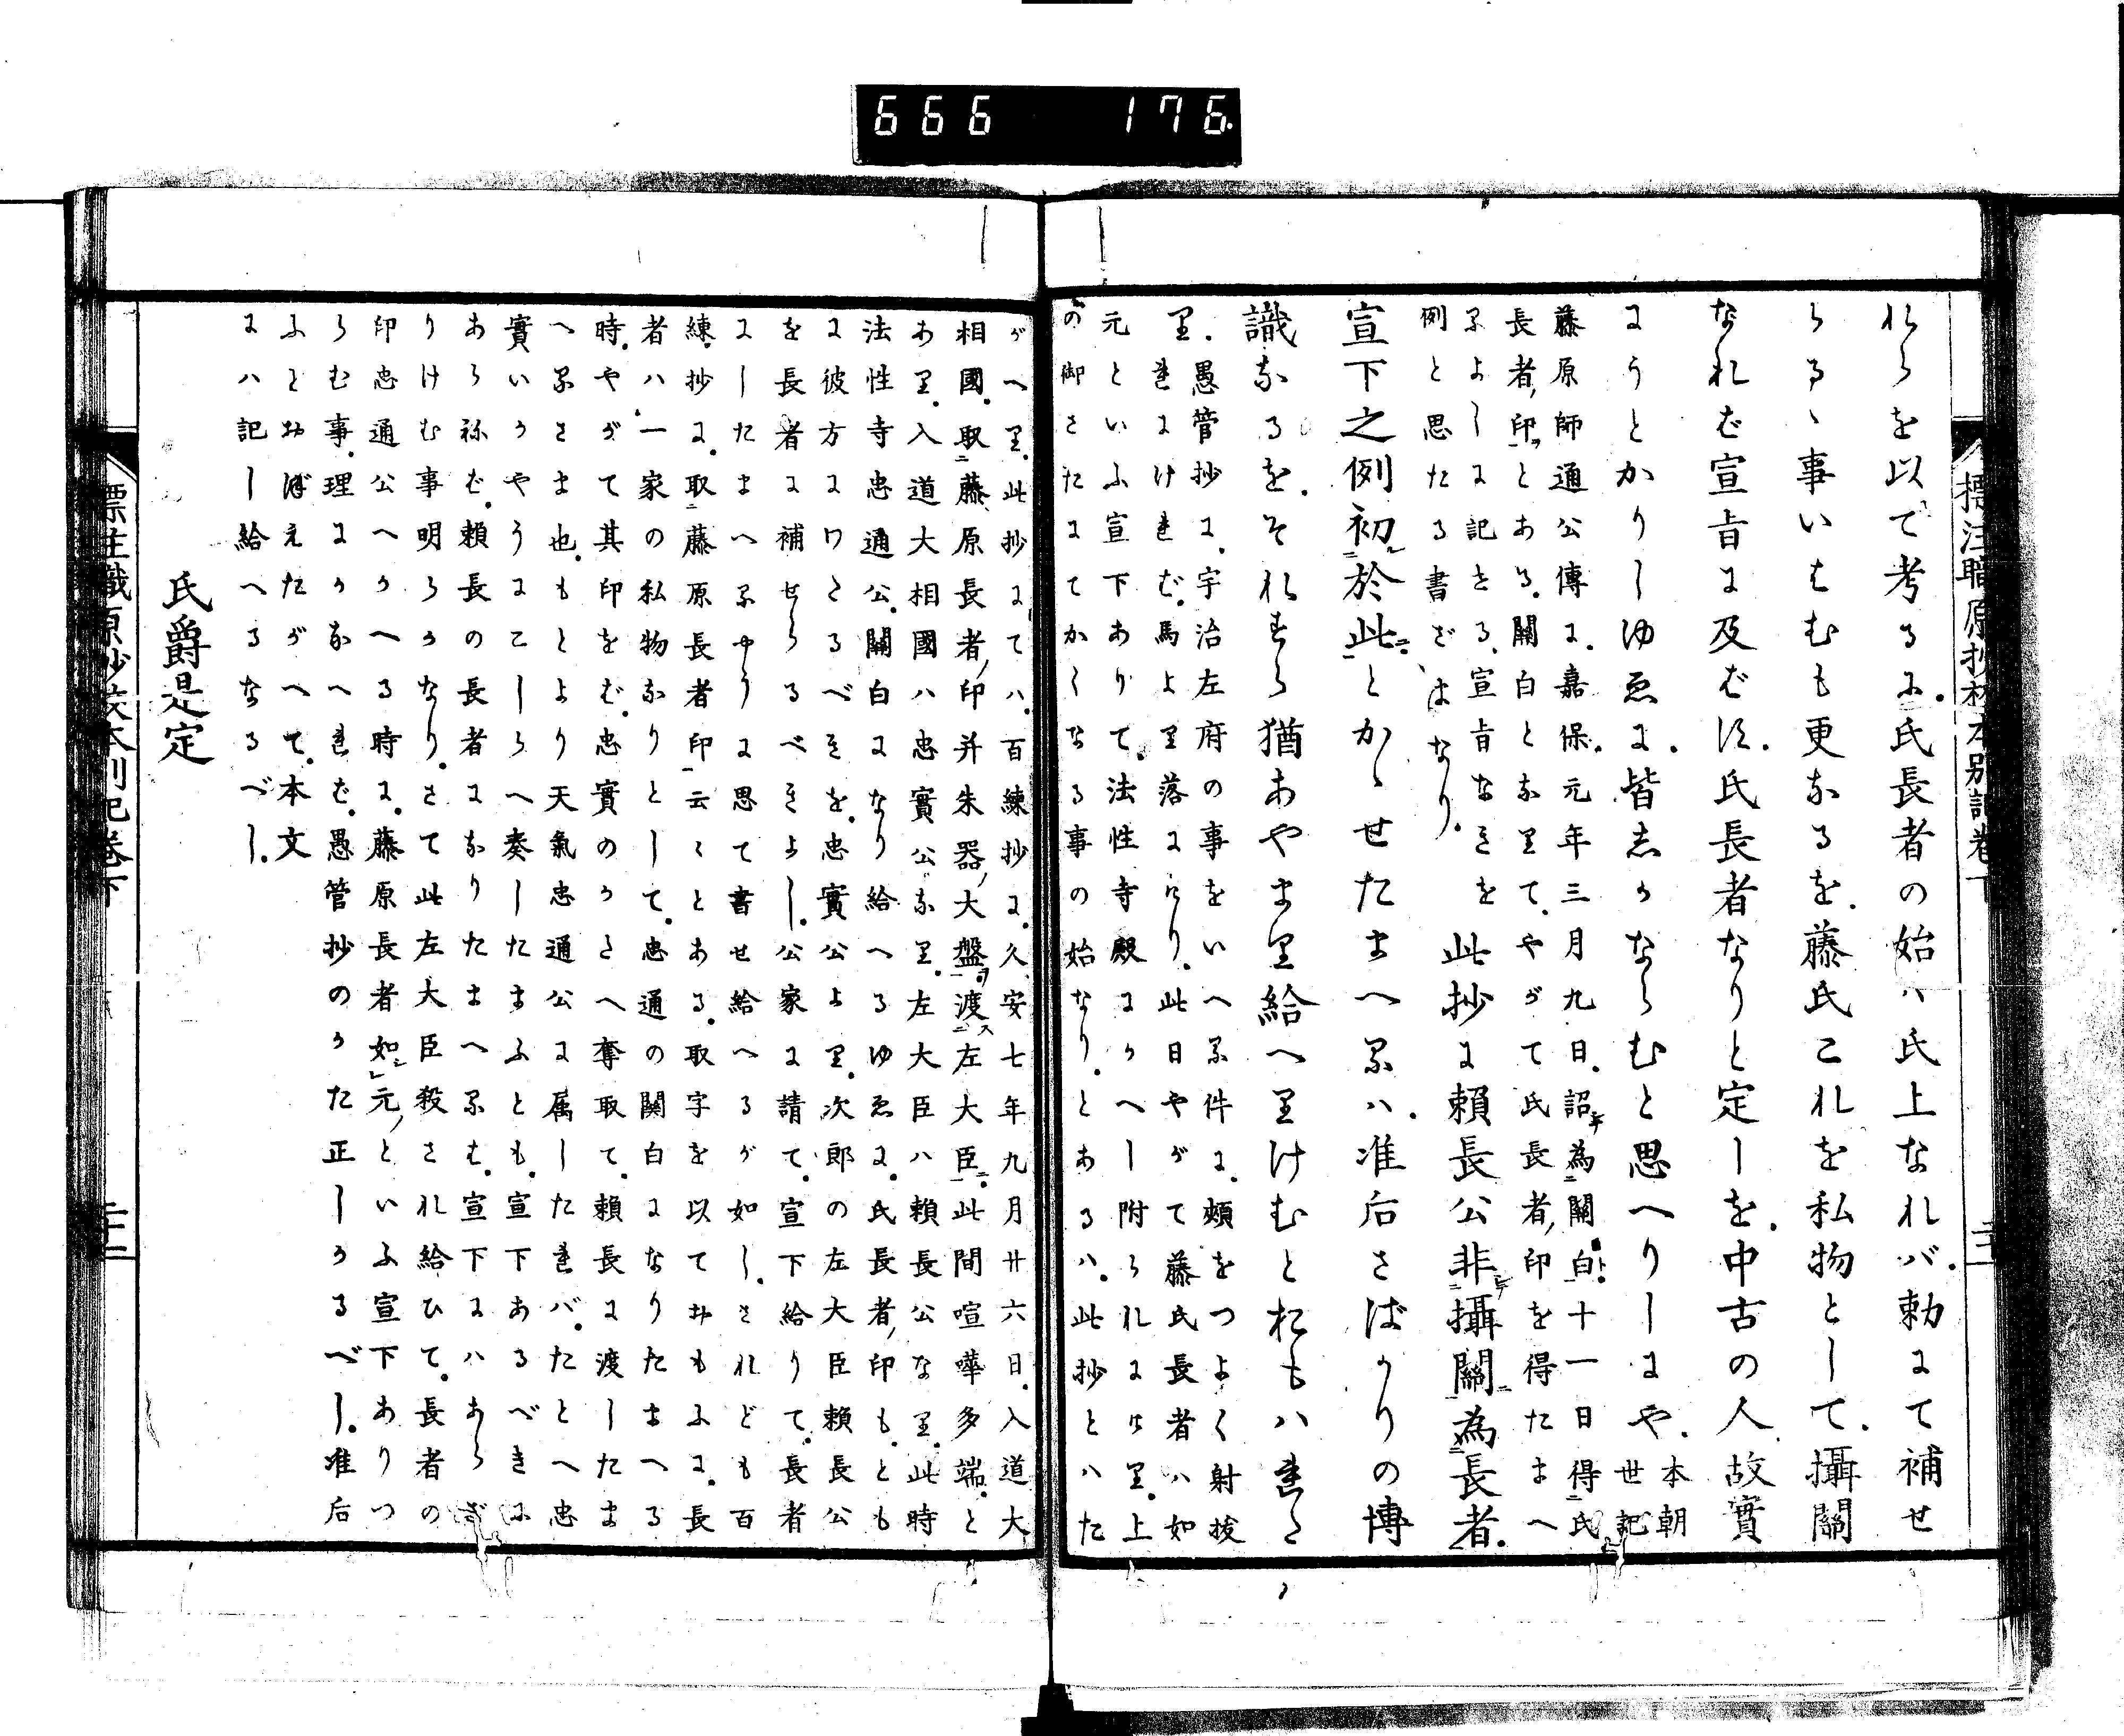 666 176
標注職原抄校本別記卷下
れらを以て考るに。氏長者の始ハ氏上なれバ。勅にて補せ
らるゝ事いはむも更なるを。藤氏これを私物として。攝關
なれば宣旨に及ばず。氏長者なりと定しを。中古の人故實
にうとかりしゆゑに。皆しかならむと思へりしにや。本朝世記
藤原師通公傳に。嘉保元年三月九日。詔為關白。十一日得氏
長者印とある。關白となりて。やがて氏長者印を得たまへ
るよしに記せる。宣旨なきを
例と思たる書ざまなり。
此抄に賴長公非攝關為長者。
宣下之例初於此とかゝせたまへるハ。准后さばかりの博
識なるを。それすら猶あやまり給へりけむとおもハるゝ
り。愚管抄に。宇治左府の事をいへる件に。頬をつよく射拔
れにければ。馬より落にけり。此日やがて藤氏長者ハ如
元といふ宣下ありて。法性寺殿にかへし附られにけり。上
の御さたにてかくなる事の始なり。とあるハ。此抄とハた
がへり。此抄にてハ。百練抄に。久安七年九月廿六日。入道大
相國。取藤原長者印并朱器大盤。渡左大臣。此間喧嘩多端。と
あり。入道大相國ハ忠實公なり。左大臣ハ賴長公なり。此時
法性寺忠通公。關白になり給へるゆゑに。氏長者印も。とも
に彼方にわたるべきを。忠實公より。次郎の左大臣賴長公
を長者に補せらるべきよし。公家に請て。宣下給りて。長者
にしたまへるやうに思て書せ給へるが如し。されども百
練抄に。取藤原長者印云々とある。取字を以ておもふに。長
者ハ一家の私物なりとして。忠通の關白になりたまへる
時。やがて其印をば。忠實のかたへ奪取て。賴長に渡したま
へるさま也。もとより天氣忠通公に属したれバ。たとへ忠
實いかやうにこしらへ奏したまふとも。宣下あるべきに
あらねば。賴長の長者になりたまへるは。宣下にハあらざ
りけむ事明らかなり。さて此左大臣殺され給ひて。長者の
印忠通公へかへる時に。藤原長者如元といふ宣下ありつ
らむ事。理にかなへれば。愚管抄のかた正しかるべし。准后
ふとおぼえたがへて。本文
にハ記し給へるなるべし。
氏爵是定
標注職原抄校本別記卷下